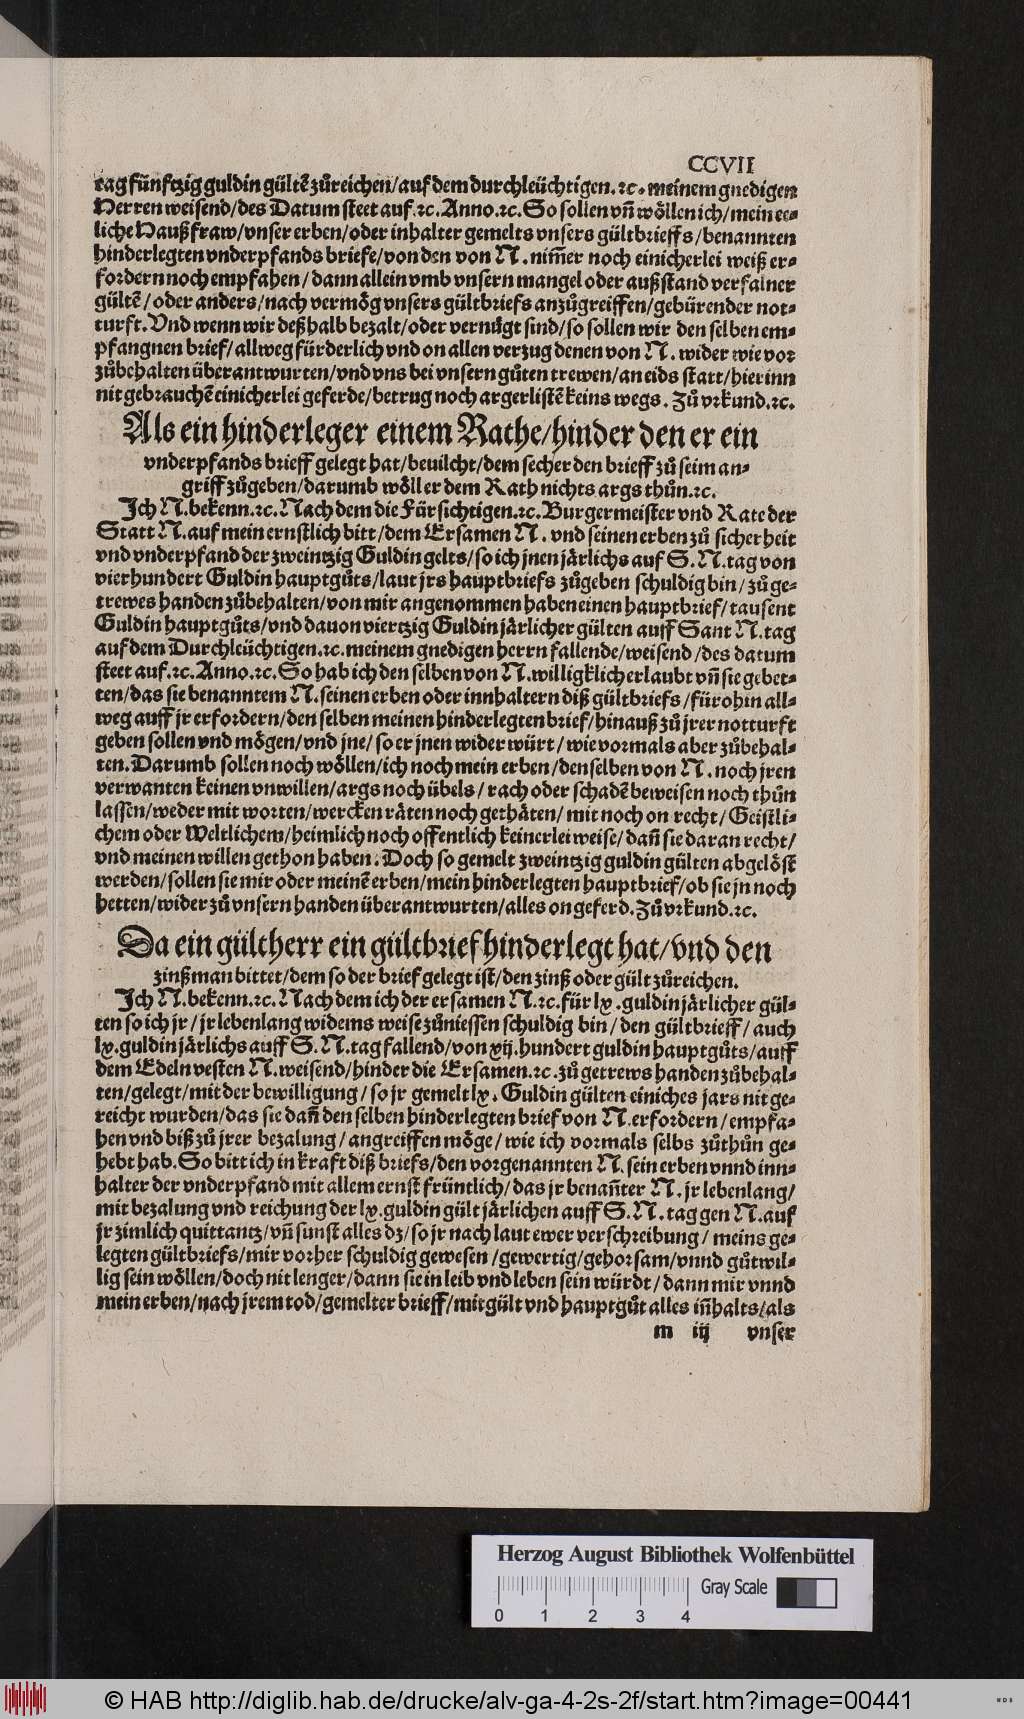 CCVII
tag fünftzig guldin gültẽ zůreichen/auf dem durchleüchtigen.ꝛc. meinem gnedigen
Herren weisend/des Datum steet auf.ꝛc.Anno.ꝛc.So sollen vñ wöllen ich/mein ee⸗
liche Haußfraw/vnser erben/oder inhalter gemelts vnsers gültbrieffs/benannten
hinderlegten vnderpfands briefe/von den von N. nim̃er noch einicherlei weiß er⸗
fordern noch empfahen/dann allein vmb vnsern mangel oder außstand verfalner
gültẽ/oder anders/nach vermög vnsers gültbriefs anzůgreiffen/gebürender not⸗
turft.Vnd wenn wir deßhalb bezalt/oder vernůgt sind/so sollen wir den selben em⸗
pfangnen brief/allweg fürderlich vnd on allen verzug denen von N. wider wie vor
zůbehalten überantwurten/vnd vns bei vnsern gůten trewen/an eids statt/hierinn
nit gebrauchẽ einicherlei geferde/betrug noch argerlistẽ keins wegs. Zů vrkund.ꝛc.
Als ein hinderleger einem Rathe/hinder den er ein
vnderpfands brieff gelegt hat/beuilcht/dem secher den brieff zů seim an⸗
griff zůgeben/darumb wöll er dem Rath nichts args thůn.ꝛc.
Ich N.bekenn.ꝛc.Nach dem die Fürsichtigen.ꝛc.Burgermeister vnd Rate der
Statt N.auf mein ernstlich bitt/dem Ersamen N. vnd seinen erben zů sicherheit
vnd vnderpfand der zweintzig Guldin gelts/so ich jnen järlichs auf S.N.tag von
vierhundert Guldin hauptgůts/laut jrs hauptbriefs zůgeben schuldig bin/zů ge⸗
trewes handen zůbehalten/von mir angenommen haben einen hauptbrief/tausent
Guldin hauptgůts/vnd dauon viertzig Guldin järlicher gülten auff Sant N.tag
auf dem Durchleüchtigen.ꝛc.meinem gnedigen herrn fallende/weisend/des datum
steet auf.ꝛc.Anno.ꝛc.So hab ich den selben von N.willigklich erlaubt vñ sie gebet⸗
ten/das sie benanntem N.seinen erben oder innhaltern diß gültbriefs/fürohin all⸗
weg auff jr erfordern/den selben meinen hinderlegten brief/hinauß zů jrer notturft
geben sollen vnd mögen/vnd jne/so er jnen wider würt/wie vormals aber zůbehal⸗
ten.Darumb sollen noch wöllen/ich noch mein erben/denselben von N.noch jren
verwanten keinen vnwillen/args noch übels/rach oder schadẽ beweisen noch thůn
lassen/weder mit worten/wercken räten noch gethäten/mit noch on recht/Geistli⸗
chem oder Weltlichem/heimlich noch offentlich keinerlei weise/dañ sie daran recht/
vnd meinen willen gethon haben.Doch so gemelt zweintzig guldin gülten abgelöst
werden/sollen sie mir oder meinẽ erben/mein hinderlegten hauptbrief/ob sie jn noch
hetten/wider zů vnsern handen überantwurten/alles on geferd.Zů vrkund.ꝛc.
Da ein gültherr ein gültbrief hinderlegt hat/vnd den
zinßman bittet/dem so der brief gelegt ist/den zinß oder gült zůreichen.
Ich N.bekenn.ꝛc.Nach dem ich der ersamen N.ꝛc.für lx.guldin järlicher gül⸗
ten so ich jr/jr lebenlang widems weise zůniessen schuldig bin/den gültbrieff/auch
lx.guldin järlichs auff S.N.tag fallend/von xij.hundert guldin hauptgůts/auff
dem Edeln vesten N.weisend/hinder die Ersamen.ꝛc.zů getrews handen zůbehal⸗
ten/gelegt/mit der bewilligung/so jr gemelt lx.Guldin gülten einiches jars nit ge⸗
reicht wurden/das sie dañ den selben hinderlegten brief von N.erfordern/empfa⸗
hen vnd biß zů jrer bezalung/angreiffen möge/wie ich vormals selbs zůthůn ge⸗
hebt hab.So bitt ich in kraft diß briefs/den vorgenannten N.sein erben vnnd inn⸗
halter der vnderpfand mit allem ernst früntlich/das jr benañter N.jr lebenlang/
mit bezalung vnd reichung der lx.guldin gült järlichen auff S.N.tag gen N.auf
jr zimlich quittantz/vñ sunst alles dz/so jr nach laut ewer verschreibung/meins ge⸗
legten gültbriefs/mir vorher schuldig gewesen/gewertig/gehorsam/vnnd gůtwil⸗
lig sein wöllen/doch nit lenger/dann sie in leib vnd leben sein würdt/dann mir vnnd
mein erben/nach jrem tod/gemelter brieff/mit gült vnd hauptgůt alles iñhalts/als
m iij vnser
Herzog August Bibliothek Wolfenbüttel
Gray Scale
0 1 2 3 4
© HAB http://diglib.hab.de/drucke/alv-ga-4-2s-2f/start.htm?image=00441